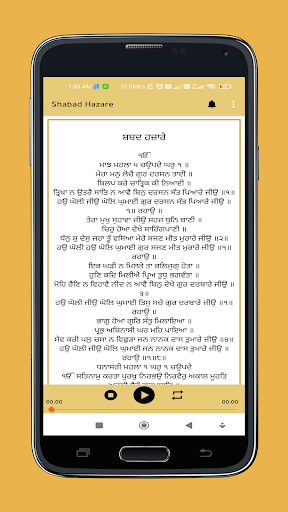 1:30 AM
72.0KB/s
Shabad Hazare
ਸ਼ਬਦ ਹਜ਼ਾਰੇ
ੴ
ਮਾਝ ਮਹਲਾ ੫ ਚਉਪਦੇ ਘਰੁ ੧ ॥
ਮੇਰਾ ਮਨੁ ਲੋਚੈ ਗੁਰ ਦਰਸਨ ਤਾਈ ॥
ਬਿਲਪ ਕਰੇ ਚਾਤ੍ਰਿਕ ਕੀ ਨਿਆਈ ॥
ਤ੍ਰਿਖਾ ਨ ਉਤਰੈ ਸਾਂਤਿ ਨ ਆਵੈ ਬਿਨੁ ਦਰਸਨ ਸੰਤ ਪਿਆਰੇ ਜੀਉ ॥੧॥
ਹਉ ਘੋਲੀ ਜੀਉ ਘੋਲਿ ਘੁਮਾਈ ਗੁਰ ਦਰਸਨ ਸੰਤ ਪਿਆਰੇ ਜੀਉ ॥
੧॥ ਰਹਾਉ ॥
ਤੇਰਾ ਮੁਖੁ ਸੁਹਾਵਾ ਜੀਉ ਸਹਜ ਧੁਨਿ ਬਾਣੀ ॥
ਚਿਰੁ ਹੋਆ ਦੇਖੇ ਸਾਰਿੰਗਪਾਣੀ ॥
ਧੰਨੁ ਸੁ ਦੇਸੁ ਜਹਾ ਤੂੰ ਵਸਿਆ ਮੇਰੇ ਸਜਣ ਮੀਤ ਮੁਰਾਰੇ ਜੀਉ ॥੨॥
ਹਉ ਘੋਲੀ ਹਉ ਘੋਲਿ ਘੁਮਾਈ ਗੁਰ ਸਜਣ ਮੀਤ ਮੁਰਾਰੇ ਜੀਉ ॥੧॥
ਰਹਾਉ ॥
ਇਕ ਘੜੀ ਨ ਮਿਲਤੇ ਤਾ ਕਲਿਜੁਗੁ ਹੋਤਾ ॥
ਹੁਣਿ ਕਦਿ ਮਿਲੀਐ ਪ੍ਰਿਅ ਤੁਧੁ ਭਗਵੰਤਾ ॥
ਮੋਹਿ ਰੈਣਿ ਨ ਵਿਹਾਵੈ ਨੀਦ ਨ ਆਵੈ ਬਿਨੁ ਦੇਖੇ ਗੁਰ ਦਰਬਾਰੇ ਜੀਉ ॥
੩॥
ਹਉ ਘੋਲੀ ਜੀਉ ਘੋਲਿ ਘੁਮਾਈ ਤਿਸੁ ਸਚੇ ਗੁਰ ਦਰਬਾਰੇ ਜੀਉ ॥੧॥
ਰਹਾਉ ॥
ਭਾਗੁ ਹੋਆ ਗੁਰਿ ਸੰਤੁ ਮਿਲਾਇਆ ॥
ਪ੍ਰਭੁ ਅਬਿਨਾਸੀ ਘਰ ਮਹਿ ਪਾਇਆ ॥
ਸੇਵ ਕਰੀ ਪਲੁ ਚਸਾ ਨ ਵਿਛੁੜਾ ਜਨ ਨਾਨਕ ਦਾਸ ਤੁਮਾਰੇ ਜੀਉ ॥੪॥
ਹਉ ਘੋਲੀ ਜੀਉ ਘੋਲਿ ਘੁਮਾਈ ਜਨ ਨਾਨਕ ਦਾਸ ਤੁਮਾਰੇ ਜੀਉ ॥
ਰਹਾਉ ॥੧॥੮॥
ਧਨਾਸਰੀ ਮਹਲਾ ੧ ਘਰੁ ੧ ਚਉਪਦੇ
ੴ ਸਤਿਨਾਮੁ ਕਰਤਾ ਪੁਰਖੁ ਨਿਰਭਉ ਨਿਰਵੈਰੁ ਅਕਾਲ ਮੂਰਤਿ
00:00
00:00